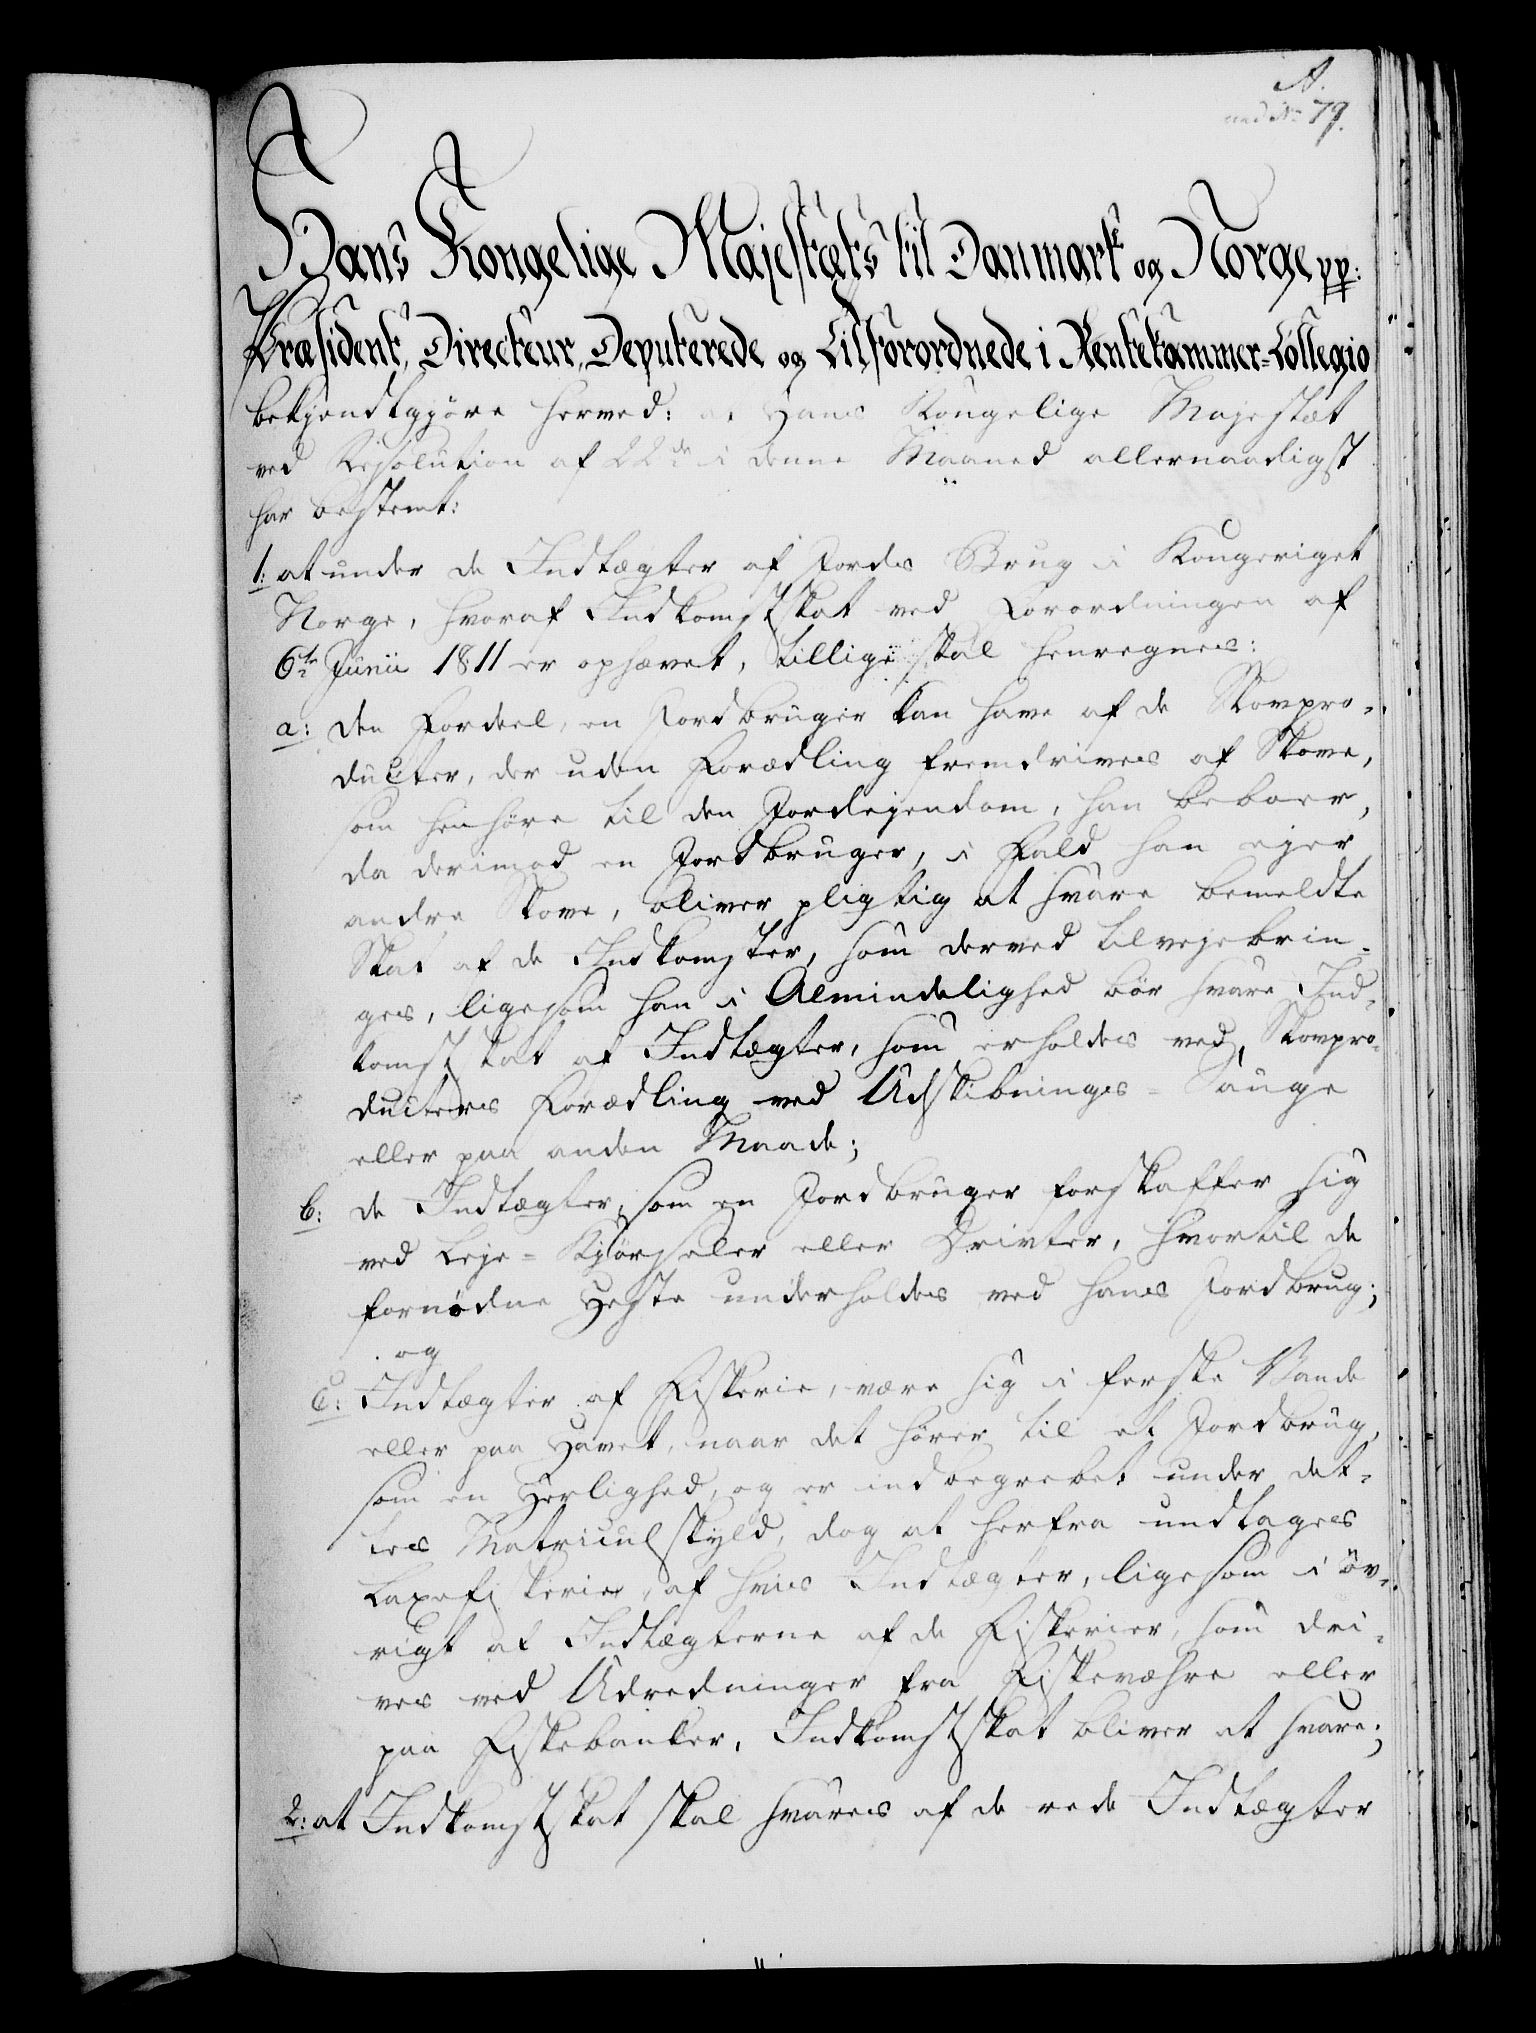 A.
ad No 79.
Hans Kongelige Majestæts til Danmark og Norge pp:
Præsident, Directeur, Deputerede og Tilforordnede i Rentekammer-Collegio
bekjendtgjöre herved: at Hans Kongelige Majestæt
ved Resolution af 22de i denne Maaned allernaadigst
har bestemt:
1: at under de Indtægter af Jords Brug i Kongeriget
Norge, hvoraf Indkomstskat ved Forordningen af
6te Junii 1811 er ophævet, tillige skal henregnes:
a: den Fordeel, en Jordbruger kan have af de Skovpro-
ducter, der uden Forædling fremdrives af Skove,
som henhöre til den Jordejendom, han beboer,
da derimod en Jordbruger, i Fald han ejer
andre Skove, bliver pligtig at svare bemeldte
Skat af de Indkomster, som derved tilvejebrin-
ges, ligesom han i Almindelighed bör svare Ind-
komstskat af Indtægter, som erholdes ved Skovpro-
ducters Forædling ved Udskibnings- Sauge
eller paa anden Maade;
b: de Indtægter, som en Jordbruger forskaffer sig
ved Leje-Kjörseler eller Drivter, hvortil de
fornödne Heste underholdes ved hans Jordbrug;
og
c: Indtægter af Fiskerie, være sig i ferske Vande
eller paa Havet, naar det hörer til et Jordbrug,
som en Herlighed, og er indbegrebet under det-
tes Matriculskyld, dog at herfra undtages
Laxefiskerier, af hvis Indtægter, ligesom i öv-
rigt af Indtægterne af de Fiskerier, som dri-
ves ved Udredninger fra Fiskevæhre eller
paa Fiskebanker, Indkomstskat bliver at svare;
2: at Indkomstskat skal svares af de rede Indtægter